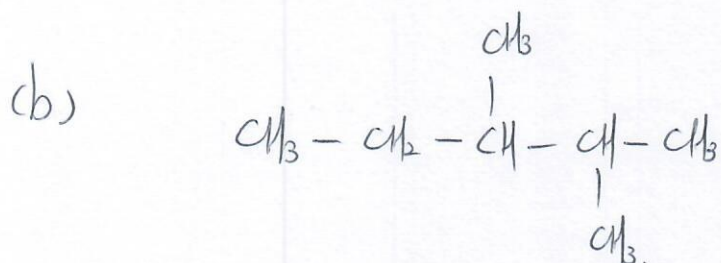 CH3
(b)
CH3 – CH2 – CH – CH – CH3
CH3.